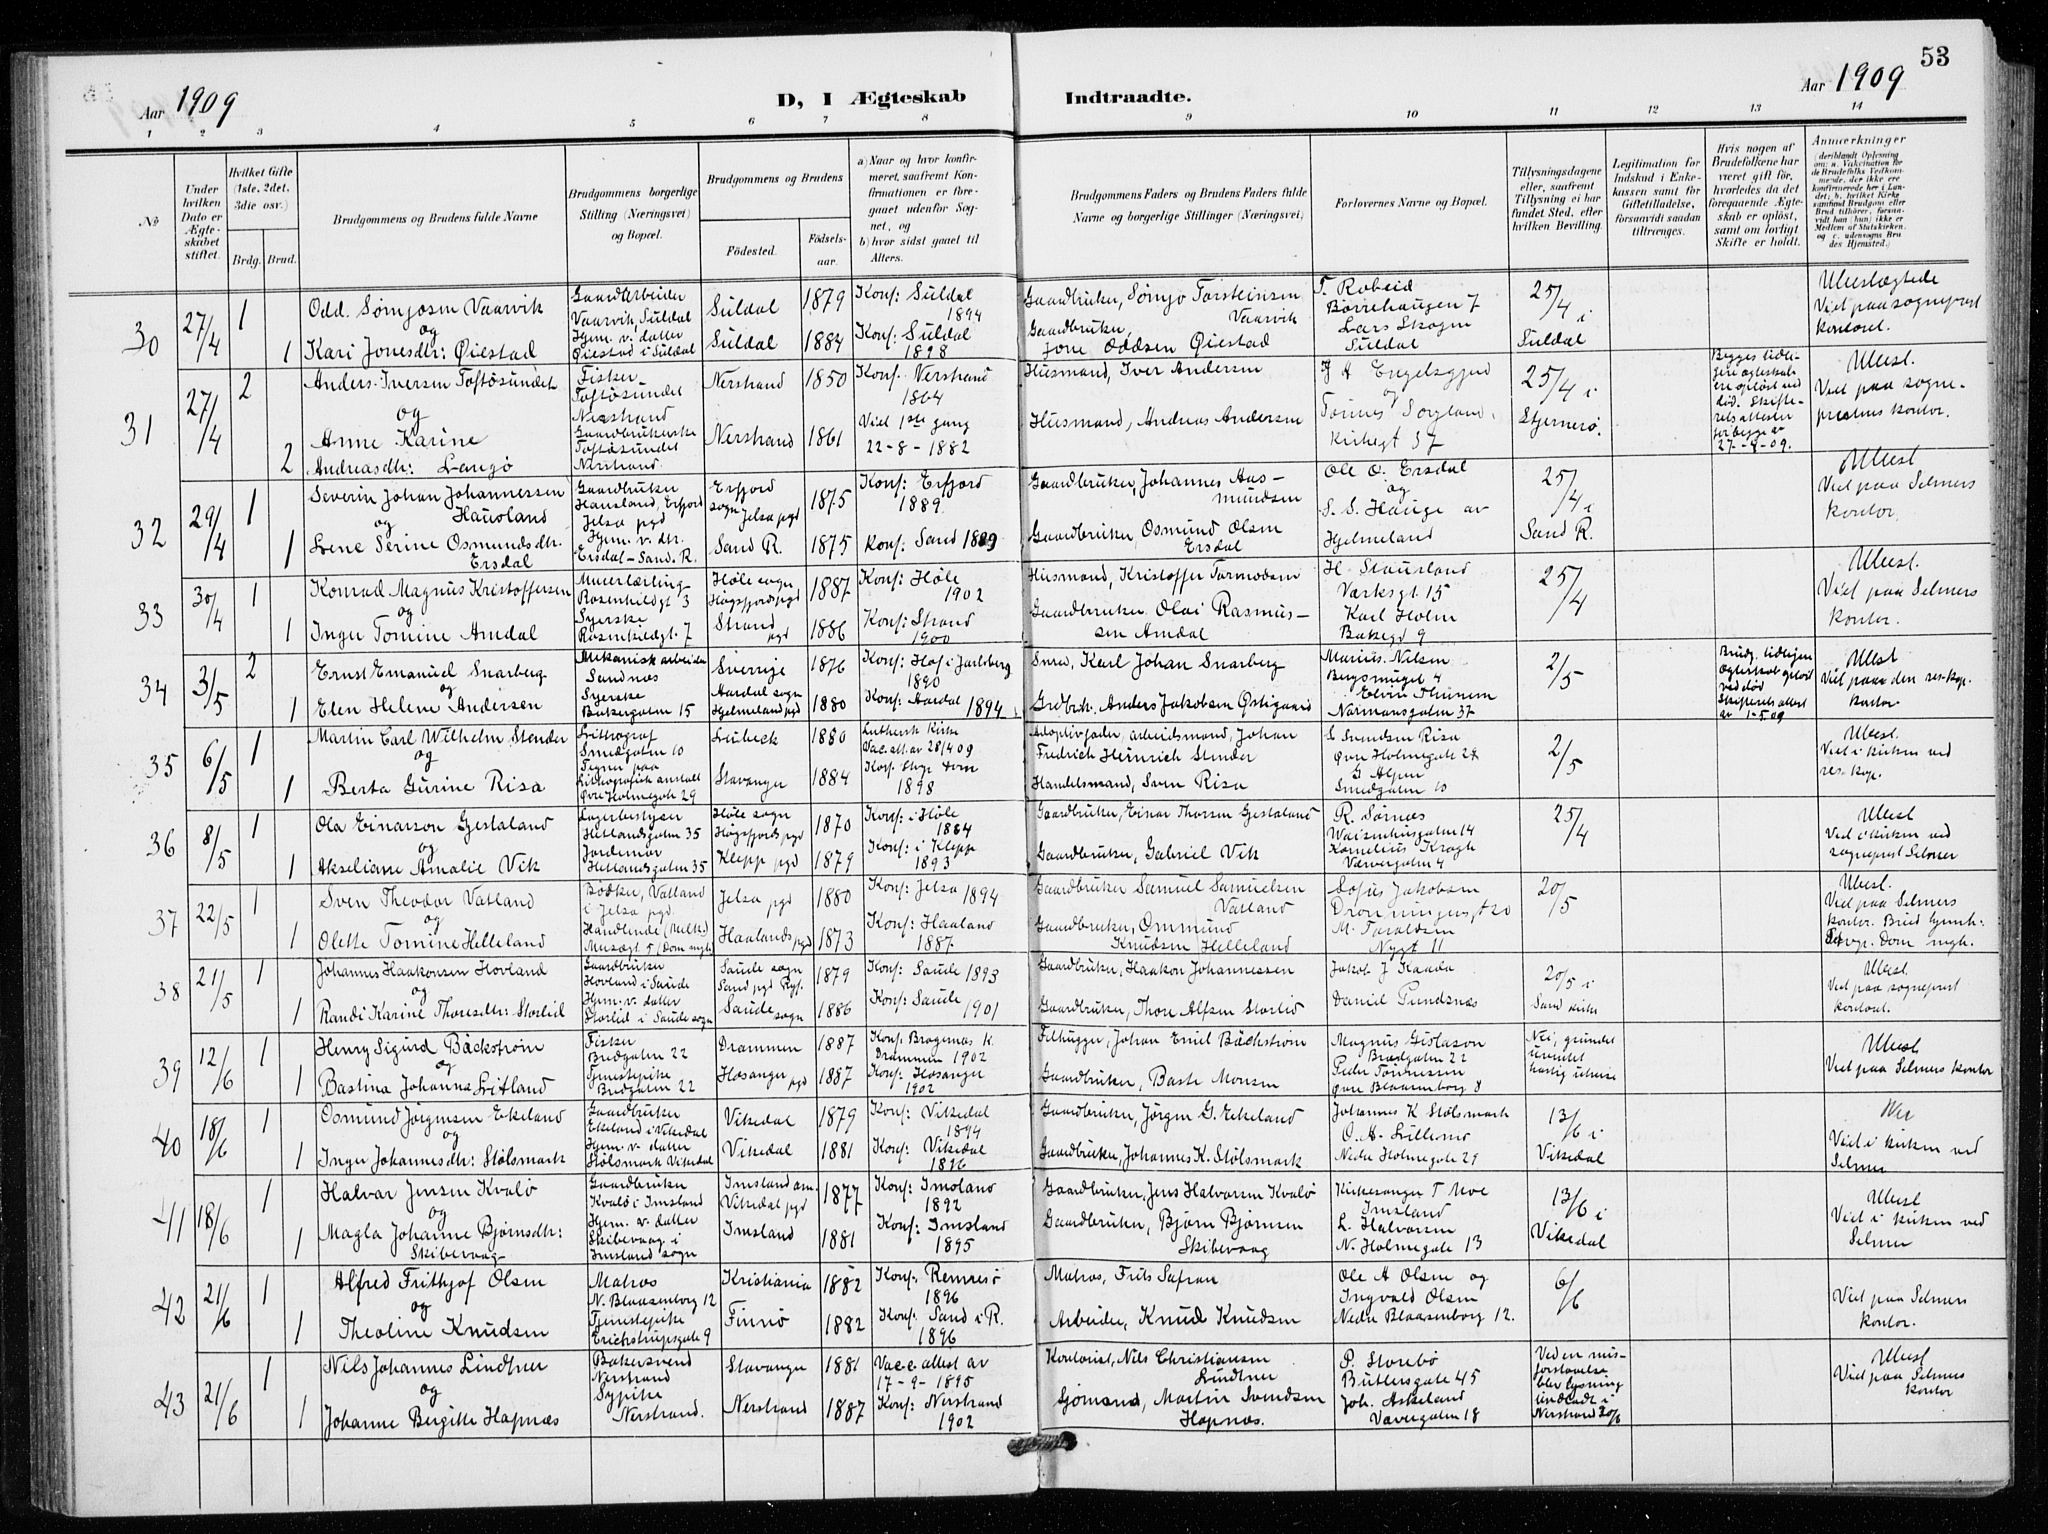 53
Aar 1909
D, I Ægteskab
Indtraadte.
Aar 1909
1 2 3 4 5 6 7 8 9 10 11 12 13 14
No
Under hvilken Dato er Ægteskabet stiftet.
Hvilket Gifte (1ste, 2det, 3die osv.)
Brdg. Brud.
Brudgommens og Brudens fulde Navne
Brudgommens borgerlige Stilling (Næringsvei) og Bopæl.
Brudgommens og Brudens
Fødested.
Fødselsaar.
a) Naar og hvor konfirmeret, saafremt Konfirmationen er foregaaet udenfor Sognet, og
b) hvor sidst gaaet til Alters.
Brudgommens Faders og Brudens Faders fulde Navne og borgerlige Stillinger (Næringsvei)
Forlovernes Navne og Bopæl.
Tillysningsdagene eller, saafremt Tillysning ei har fundet Sted, efter hvilken Bevilling.
Legitimation for Indskud i Enkekassen samt for Giftetilladelse, forsaavidt saadan tiltrænges.
Hvis nogen af Brudefolkene har været gift før, hvorledes da det foregaaende Ægteskab er opløst, samt om lovligt Skifte er holdt.
Anmærkninger
30 27/4 1
Odd. Sømjosen Vaarvik
og
1 Kari Jonesdtr: Øiestad
Gaardarbeider
Vaarvik, Suldal
Hjem. v. datter
Øiestad i Suldal
Suldal 1879
Suldal 1884
Konf: Suldal
1894
Konf: Suldal
1898
Gaardbruker, Sømjo Torsteinsen
Vaarvik
Gaardbruker,
Jone Oddsen Øiestad
T. Robeid
Børrehaugen 7
Lars Skogen
Suldal
25/4 i
Suldal
Ubeslægtede
Viet paa sogneprest
kontoret.
31 27/4 2
Anders Iversen Toftøsundet
og
Anne Karine
2 Andreasdtr: Langø
Fisker
Toftøsundet
Nerstrand
Gaardbrukerske
Toftøsundet
Nerstrand.
Nerstrand 1850
Nerstrand 1861
Konf. Nerstrand
1864
Viet 1ste gang
22-8-1882
Husmand, Iver Andersen
Husmand, Andreas Andersen
og
Kirkegt 37
25/4 i
Stjernerø.
Begges tidligere egteskab
ere opløst ved
død. Skifteretsattester
27-4-09.
Ubesl.
Viet paa sogneprestens kontor.
32 29/4 1
Severin Johan Johannessen
og Hausland
Lene Serine Osmundsdtr.
1 Ersdal
Gaardbruker
Hausland, Erfjord
Jelsa pgd
Hjem. v. dtr.
Ersdal-Sand. R.
Erfjord
sogn Jelsa pgd 1875
Sand R. 1875
Konf: Erfjord
1889.
Konf: Sand 1889
Gaardbruker, Johannes Aasmundsen
Gaardbruker, Osmund Olsen
Ersdal
Ole O. Ersdal
og
S. S. Hauge av
Hjelmeland
25/4 i
Sand R.
Ubesl
Viet paa Selmers
kontor.
33 30/4 1
Konrad Magnus Kristoffersen
og
1 Inger Tomine Amdal
Murerlærling
Rosenkildgt 3
Syerske
Rosenkildegt. 7
Høle sogn
Høgsfjords pgd 1887
Strand pgd 1886
Konf: Høle
1902
Konf: Strand
1900
Husmand, Kristoffer Tormodsen
Gaardbruker Olai Rasmussen Amdal
H. Stausland
Værksgt. 15
Karl Holm
Bakegd 9
25/4
Ubesl.
Viet paa Selmers
kontor.
34 3/5 2
Ernst Emanuel Snarberg
og
1 Elen Helene Andersen
Mekanisk arbeider
Sandnæs
Syerske
Bakergaten 15
Sverrige 1876
Aardal sogn
Hjelmeland pgd 1880
Konf: Hof i Jarlsberg
1890
Konf: Aardal 1894
Smed, Karl Johan Snarberg
Grdbrk. Anders Jakobsen Østigaard
Marius Nilsen
Bergsmuget 4
Normansgaten 37
2/5
Brudg. tidligere
egteskab opløst
ved død
Skifteretsattest
av 1-5.09
Ubesl
Viet paa den res. kap.
kontor.
35 6/5 1
Martin Carl Wilhelm Stender
og
1 Berta Gurine Risa
Litograf
Smedgaten 10
Tegner paa
Lithografisk anstalt
Øvre Holmegate 29
Lübeck 1880
Stavanger 1884
Luthersk Kirke
Vac. att. av 28/4 09
1898
Adoptivfader, arbeidsmand, Johan
Fredrich Heinrich Stender
Handelsmand, Sven Risa
S Svendsen Risa
Øvre Holmegate 24
Smedgaten 10
2/5
Ubesl.
Viet i kirken ved
res. kap.
36 8/5 1
Ola Einarson Gjestaland
og
1 Akseliane Amalie Vik
Lagerbestyrer
Hetlandsgaten 35
Jordemor
Hetlandsgaten 35
Høle sogn
Høgsfjords pgd 1870
Klepp pgd 1879
Konf: i Høle
1884
Konf: i Klepp
1893
Gaardbruker, Einar Thorsen Gjestaland
Gaardbruker, Gabriel Vik
R. Sørnes
Waisenhusgaten 14
Kornelius Kragh
Værvergaten 4
25/4
Ubesl
Viet i kirken ved
sogneprest Selmer
37 22/5 1
Sven Theodor Vatland
og
1 Olette Tomine Helleland
Bødker, Vatland
i Jelsa pgd.
Handlende (Melk)
Jelsa pgd 1880
Haalands pgd 1873
Konf: Jelsa 1894
Konf: Haaland
1887.
Gaardbruker Samuel Samuelsen
Vatland
Gaardbruker, Ommund
Knudsen Helleland
Sofus Jakobsen
Dronningensgt 20
M. Taraldsen
Nygt 11
20/5
Ubesl.
Viet paa Selmers
kontor.
38 21/5 1
Johannes Haakonsen Hovland
og
1 Randi Karine Thoresdtr: Storlid
Gaardbruker
Hovland i Saude
Hjem. v. datter
Storlid i Saude sogn
Saude sogn
Sand pgd Ryf. 1879
Saude sogn 1886
Konf: Saude 1893
Konf: Saude
1901
Gaardbruker, Haakon Johannessen
Gaardbruker, Thore Alfsen Storlid
Jakob J Kaada
Daniel Tundsnæs
20/5 i
Sand kirke
Ubesl.
Viet paa sogneprest
kontoret.
39 12/6 1
Henry Sigurd Bäckstrøm
og
1 Bastina Johanna Litland
Fisker
Bredgaten 22
Tjenestepike
Bredgaten 22
Drammen 1887
Hosanger pgd 1887
Konf. Bragernes K.
Drammen 1902
Konf: Hosanger
1902
Filhugger, Johan Emil Bäckstrøm
Gaardbruker, Baste Monsen
Magnus Gislason
Bredgaten 22
Peder Tønnessen
Øvre Blaasenborg 8
Nei, grundet
uventet
hurtig utreise
Ubesl
Viet paa Selmers kontor
40 18/6 1
Osmund Jørgensen Ekeland
og
1 Inger Johannesdtr: Stølsmark
Gaardbruker
Ekeland i Vikedal
Hjem. v. datter
Stølsmark Vikedal
Vikedal 1879
Vikedal 1881
Konf: Vikedal
1894
Konf: Vikedal
1896
Gaardbruker, Jørgen G. Ekeland
Gaardbruker, Johannes K. Stølsmark
Johannes K Stølsmark
O. A. Lillemo
Nedre Holmegate 29
13/6 i
Vikedal
Viet i kirken ved
Selmer
41 18/6 1
Halvar Jensen Kvalø
og
Magla Johanne Bjørnsdtr:
1 Skibevaag
Gaardbruker
Kvalø i Imsland
Hjem. v. datter
Skibevaag i
Imsland sogn
Imsland an.
Vikedal pgd 1877
Imsland 1881
Konf: Imsland
1892
Konf: Imsland
1895
Gaardbruker, Jens Halvorsen Kvalø
Gaardbruker, Bjørn Bjørnsen
Skibevaag
Kirkesanger T Moe
Imsland
L. Halvorsen
N. Holmegate 13
13/6 i
Vikedal
Ubesl
Viet i kirken ved
Selmer
42 21/6 1
Alfred Frithjof Olsen
og
1 Theoline Knudsen
Matros
N. Blaasenborg 12
Tjenestepike
Erichstrupsgate 9
Kristiania 1882
Finnø 1882
Konf. Rennesø
1896
Konf. Sand i R.
1896
Matros, Frits Safran
Arbeider, Knud Knudsen
Ole A Olsen og
Ingvald Olsen
Nedre Blaasenborg 12.
6/6
Viet paa Selmers
kontor.
43 21/6 1
Nils Johannes Lindtner
og
1 Johanne Bergitte Hapnæs
Bakersvend
Nerstrand
Sypike
Nerstrand.
Stavanger 1881
Nerstrand 1887
Vacc. attest av
17-9-1895
Konf: Nerstrand
1902
Kontorist, Nils Christiansen
Lindtner
Sjømand, Martin Svendsen
Hapnæs.
P. Storebø
Butlersgate 45
Joh. Askeland
Vævergaten 18
Ved en misforstaaelse
blev lysning
undladt i
Nerstrand 20/6
Ubesl
Viet paa Selmers
kontor